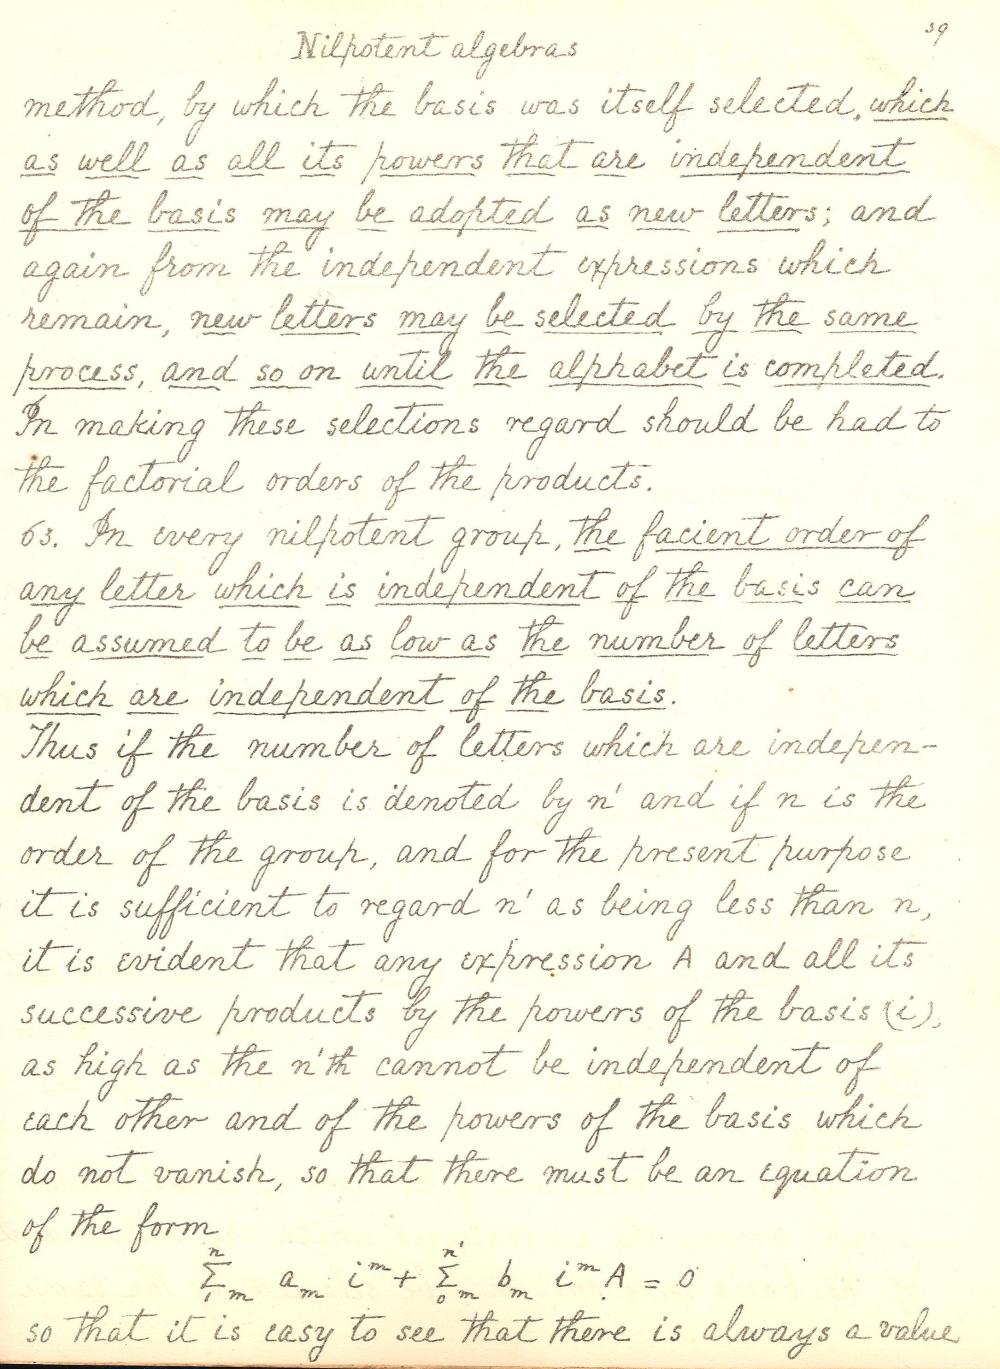 39
Nilpotent algebras
method, by which the basis was itself selected, which
as well as all its powers that are independent
of the basis may be adopted as new letters; and
again from the independent expressions which
remain, new letters may be selected by the same
process, and so on until the alphabet is completed.
In making these selections regard should be had to
the factorial orders of the products.
63. In every nilpotent group, the facient order of
any letter which is independent of the basis can
be assumed to be as low as the number of letters
which are independent of the basis.
Thus if the number of letters which are indepen-
dent of the basis is denoted by n' and if n is the
order of the group, and for the present purpose
it is sufficient to regard n' as being less than n,
it is evident that any expression A and all its
successive products by the powers of the basis (i),
as high as the n'th cannot be independent of
each other and of the powers of the basis which
do not vanish, so that there must be an equation
of the form
n∑1m am i^m + n'∑0m bm i^m A = 0
so that it is easy to see that there is always a value